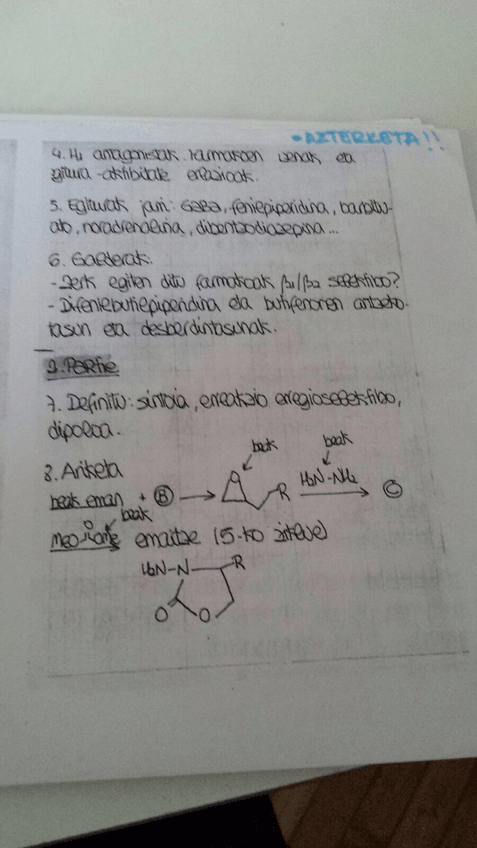 • AZTERKETA!!
4. H1 antagonistak. Farmakoen izenak eta
egitura-aktibitate erlazioak.
5. Egiturak jarri: GABA, feniepiperidina, barbitu-
ato, noradrenalina, dibentzodiazepina...
6. Galderak.
- Zerk egiten ditu farmakoak β1/β2 selektibo?
- Difenilbutilpiperidina eta butifenonen antzeko-
tasun eta desberdintasunak.
2. PARTIE
7. Definitu: sintoia, erreakzio erregioselektibo,
dipoloa.
8. Ariketa
beak eman + B → O R H2N-NH2 → C
beak beak
beak
MeO O OMe emaitza (5-ko zikloa)
H2N-N R
O O